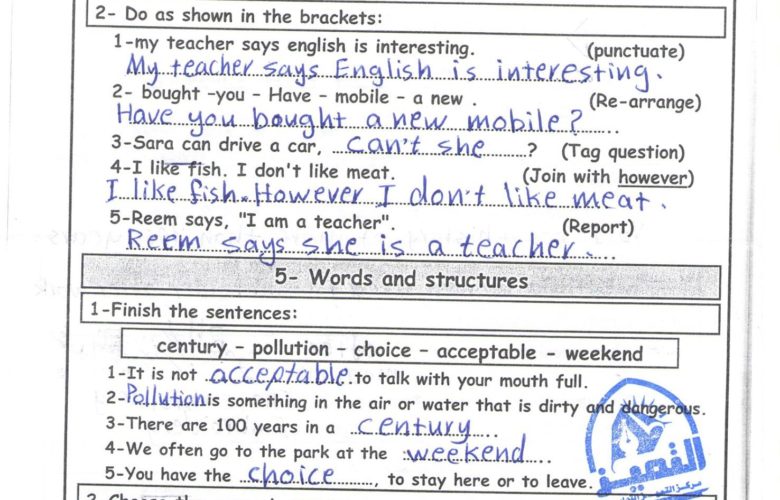 2- Do as shown in the brackets:
1-my teacher says english is interesting. (punctuate)
My teacher says English is interesting.
2- bought -you - Have - mobile - a new . (Re-arrange)
Have you bought a new mobile?
3-Sara can drive a car, can't she ? (Tag question)
4-I like fish. I don't like meat. (Join with however)
I like fish. However I don't like meat.
5-Reem says, "I am a teacher". (Report)
Reem says she is a teacher.
5- Words and structures
1-Finish the sentences:
century - pollution - choice - acceptable - weekend
1-It is not acceptable to talk with your mouth full.
2-Pollution is something in the air or water that is dirty and dangerous.
3-There are 100 years in a century
4-We often go to the park at the weekend
5-You have the choice, to stay here or to leave.